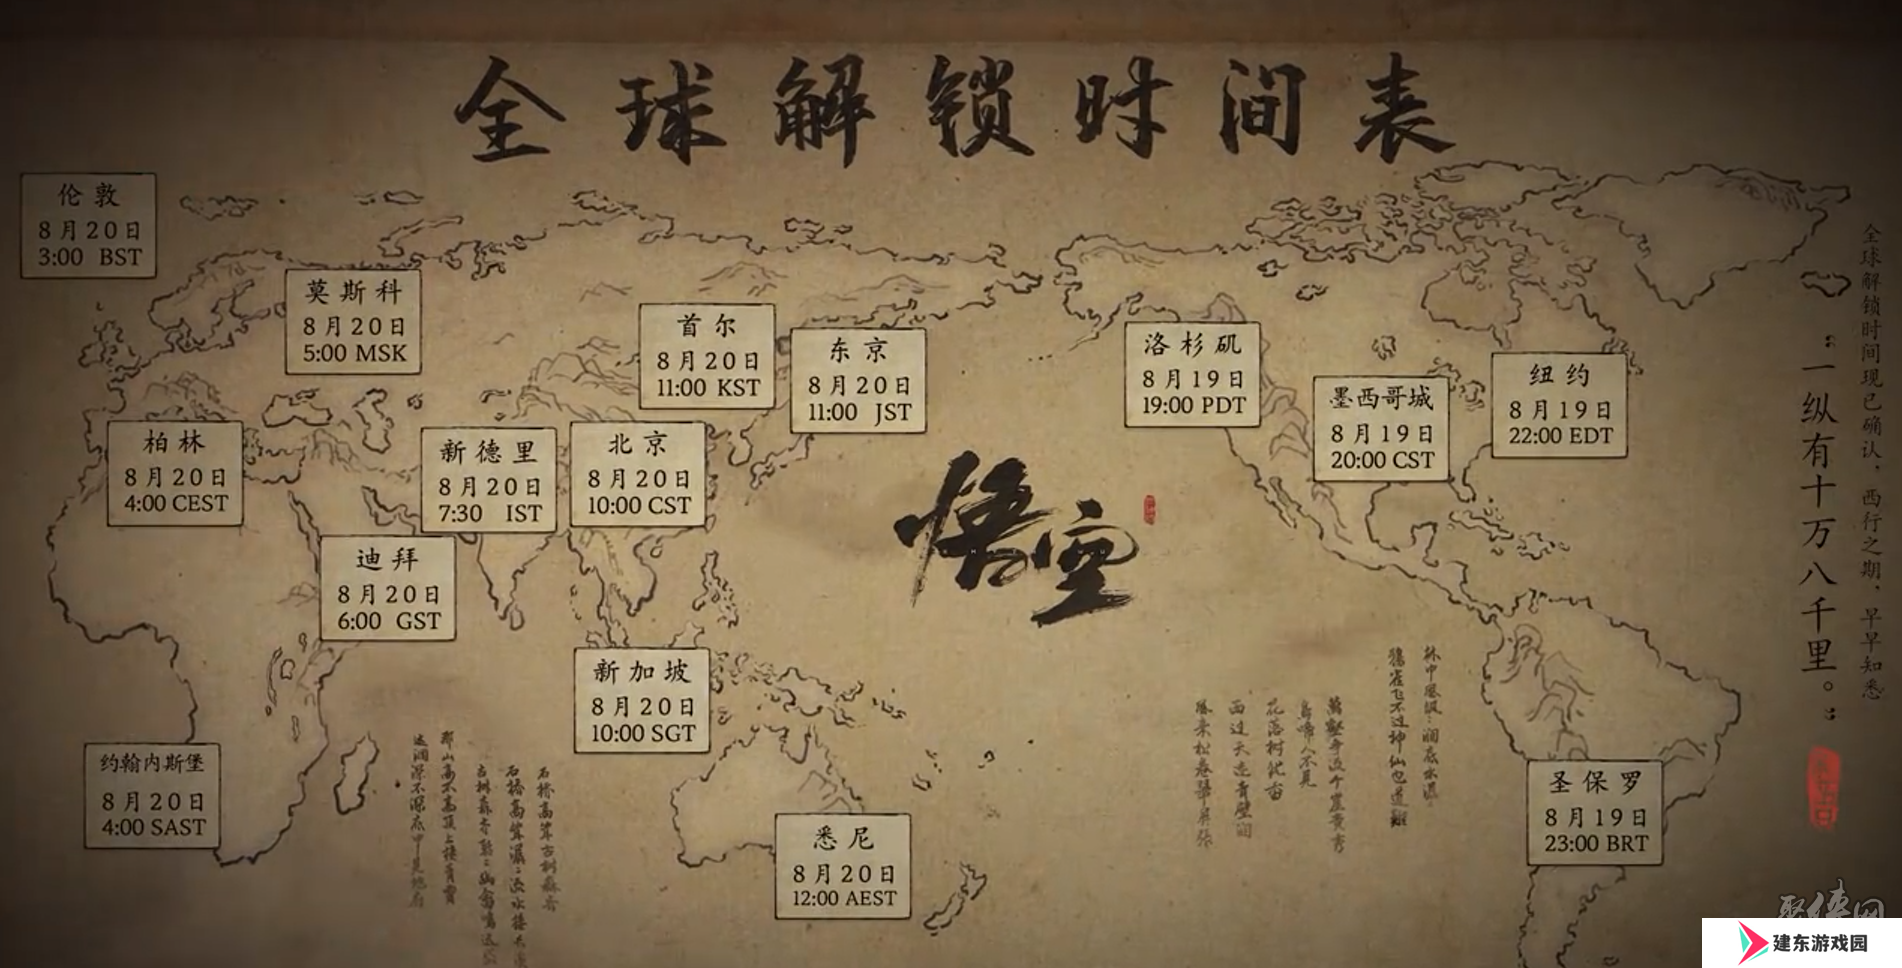 全球解锁时间表
伦敦
8月20日
3:00 BST
莫斯科
8月20日
5:00 MSK
首尔
8月20日
11:00 KST
东京
8月20日
11:00 JST
洛杉矶
8月19日
19:00 PDT
墨西哥城
8月19日
20:00 CST
纽约
8月19日
22:00 EDT
柏林
8月20日
4:00 CEST
新德里
8月20日
7:30 IST
北京
8月20日
10:00 CST
迪拜
8月20日
6:00 GST
悟空
新加坡
8月20日
10:00 SGT
约翰内斯堡
8月20日
4:00 SAST
悉尼
8月20日
12:00 AEST
圣保罗
8月19日
23:00 BRT
全球解锁时间现已确认，西行之期，早早知悉
：一纵有十万八千里。：
聚侠网
建东游戏园